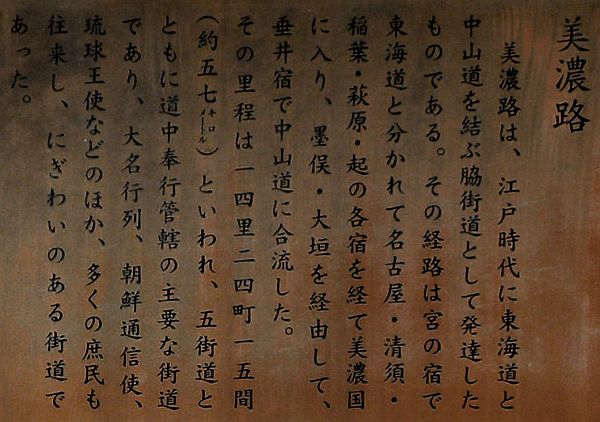 美濃路
美濃路は、江戸時代に東海道と
中山道を結ぶ脇街道として発達した
ものである。その経路は宮の宿で
東海道と分かれて名古屋・清須・
稲葉・萩原・起の各宿を経て美濃国
に入り、墨俣・大垣を経由して、
垂井宿で中山道に合流した。
その里程は一四里二四町一五間
(約五七キロメートル)といわれ、五街道と
ともに道中奉行管轄の主要な街道
であり、大名行列、朝鮮通信使、
琉球王使などのほか、多くの庶民も
往来し、にぎわいのある街道で
あった。